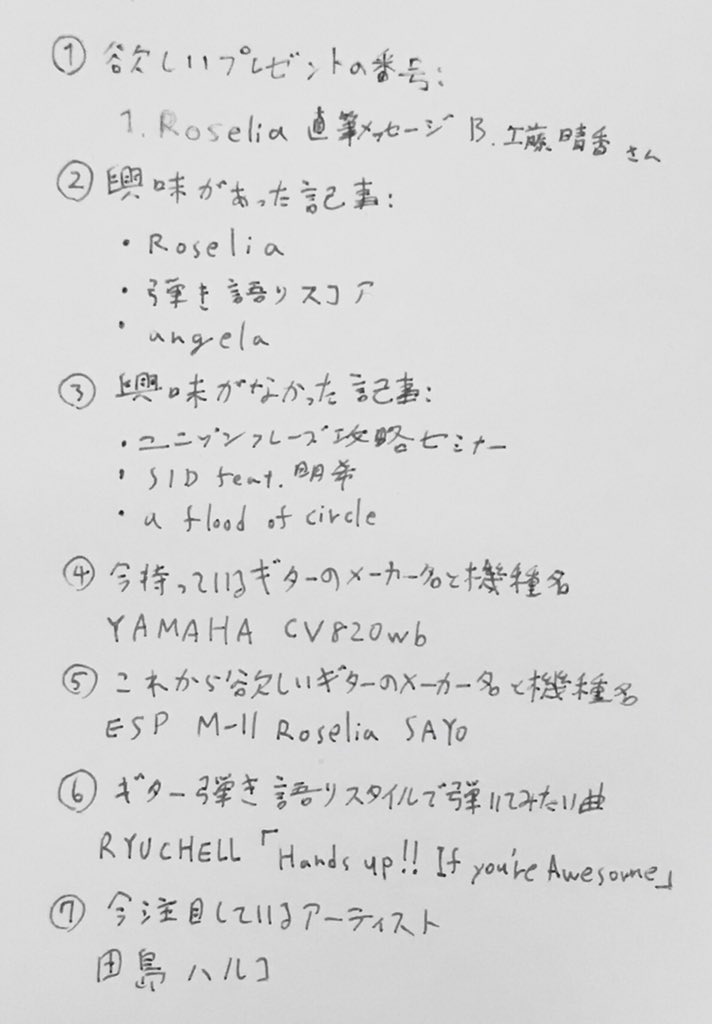 ① 欲しいプレゼントの番号:
1. Roselia 直筆メッセージ B. 工藤晴香さん
② 興味があった記事:
・Roselia
・弾き語りスコア
・angela
③ 興味がなかった記事:
・ユニゾンフレーズ攻略セミナー
・SID feat. 明希
・a flood of circle
④ 今持っているギターのメーカー名と機種名
YAMAHA CV820wb
⑤ これから欲しいギターのメーカー名と機種名
ESP M-II Roselia SAYO
⑥ ギター弾き語りスタイルで弾いてみたい曲
RYUCHELL「Hands up!! If you're Awesome」
⑦ 今注目しているアーティスト
田島ハルコ